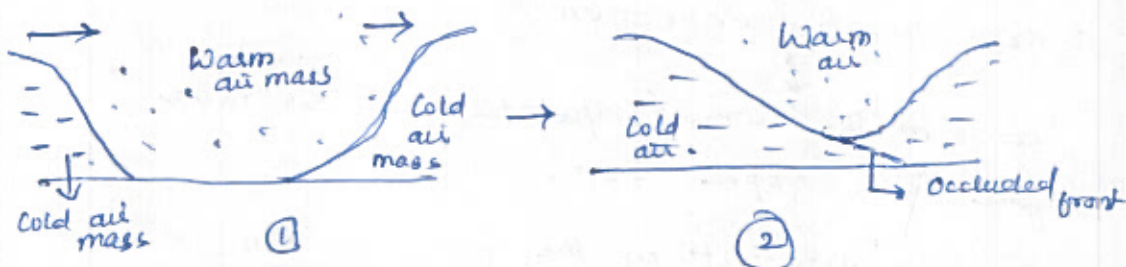 Warm
air mass
Cold
air
mass
Cold air
mass
①
Warm
air
Cold
air.
Occluded front
②